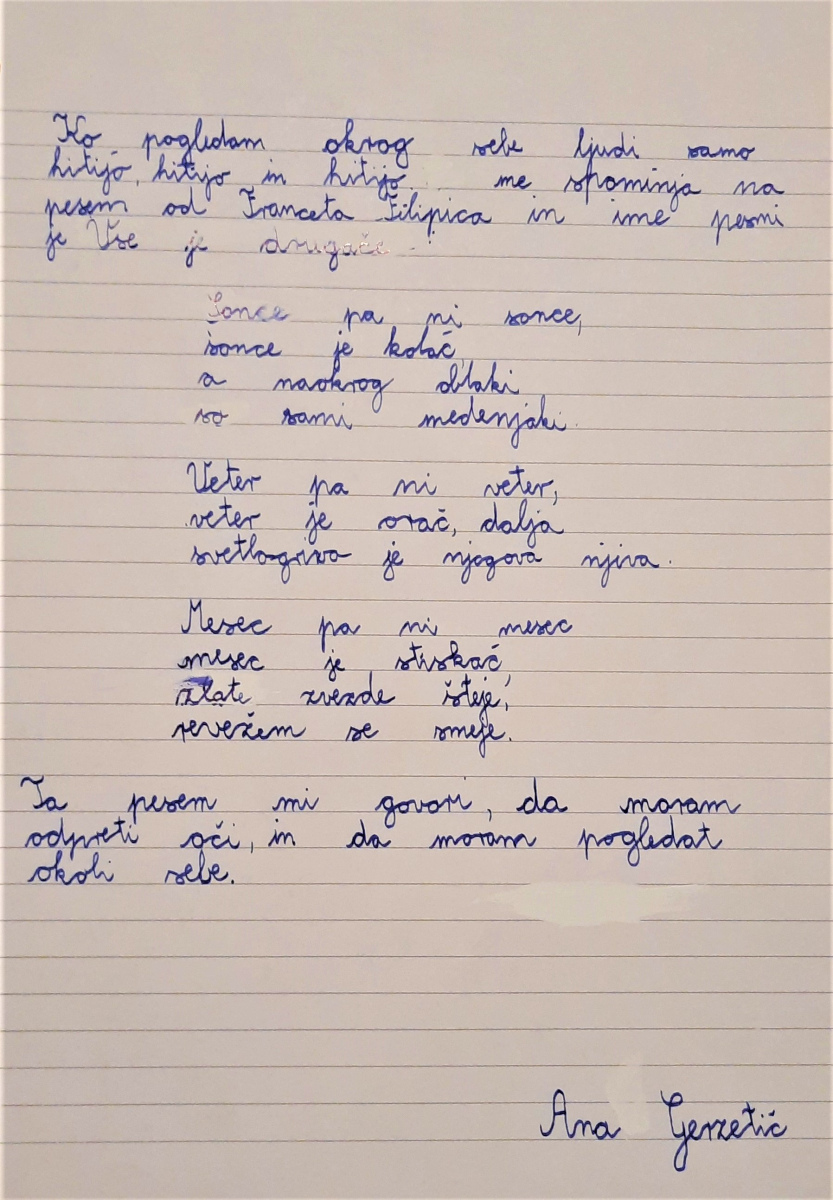 Ko pogledam okrog sebe ljudi samo
hitijo, hitijo in hitijo... me spominja na
pesem od Franceta Filipica in ime pesmi
je Vse je drugače!
Sonce pa ni sonce,
sonce je kolač,
a naokrog oblaki
so sami medenjaki.
Veter pa ni veter,
veter je orač, dalja
svetlogriva je njegova njiva.
Mesec pa ni mesec
mesec je stiskač,
zlate zvezde šteje,
revežem se smeje.
Ta pesem mi govori, da moram
odpreti oči, in da moram pogledat
okoli sebe.
Ana Gerzetič